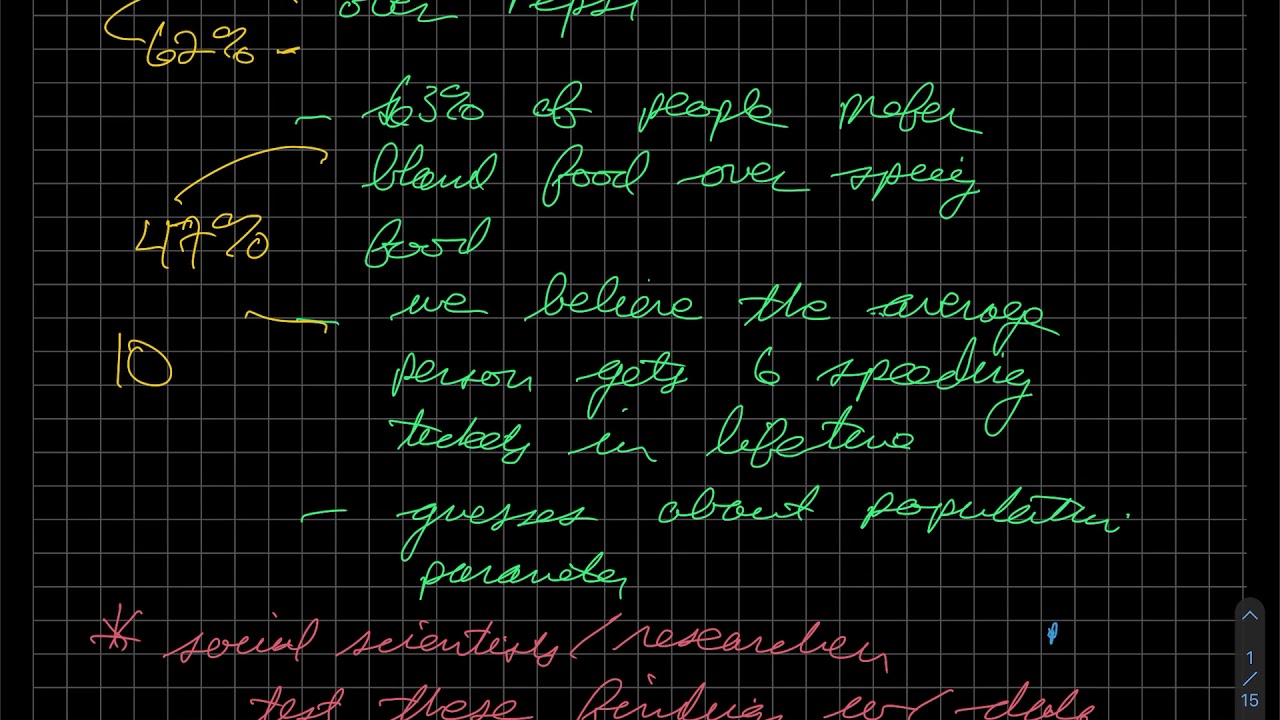 over Pepsi
62% -
- 63% of people prefer
bland food over spicy
47% food
we believe the average
10 person gets 6 speeding
tickets in lifetime
- guesses about population
parameter
* social scientists/researcher
test these findings w/ data
1
/
15